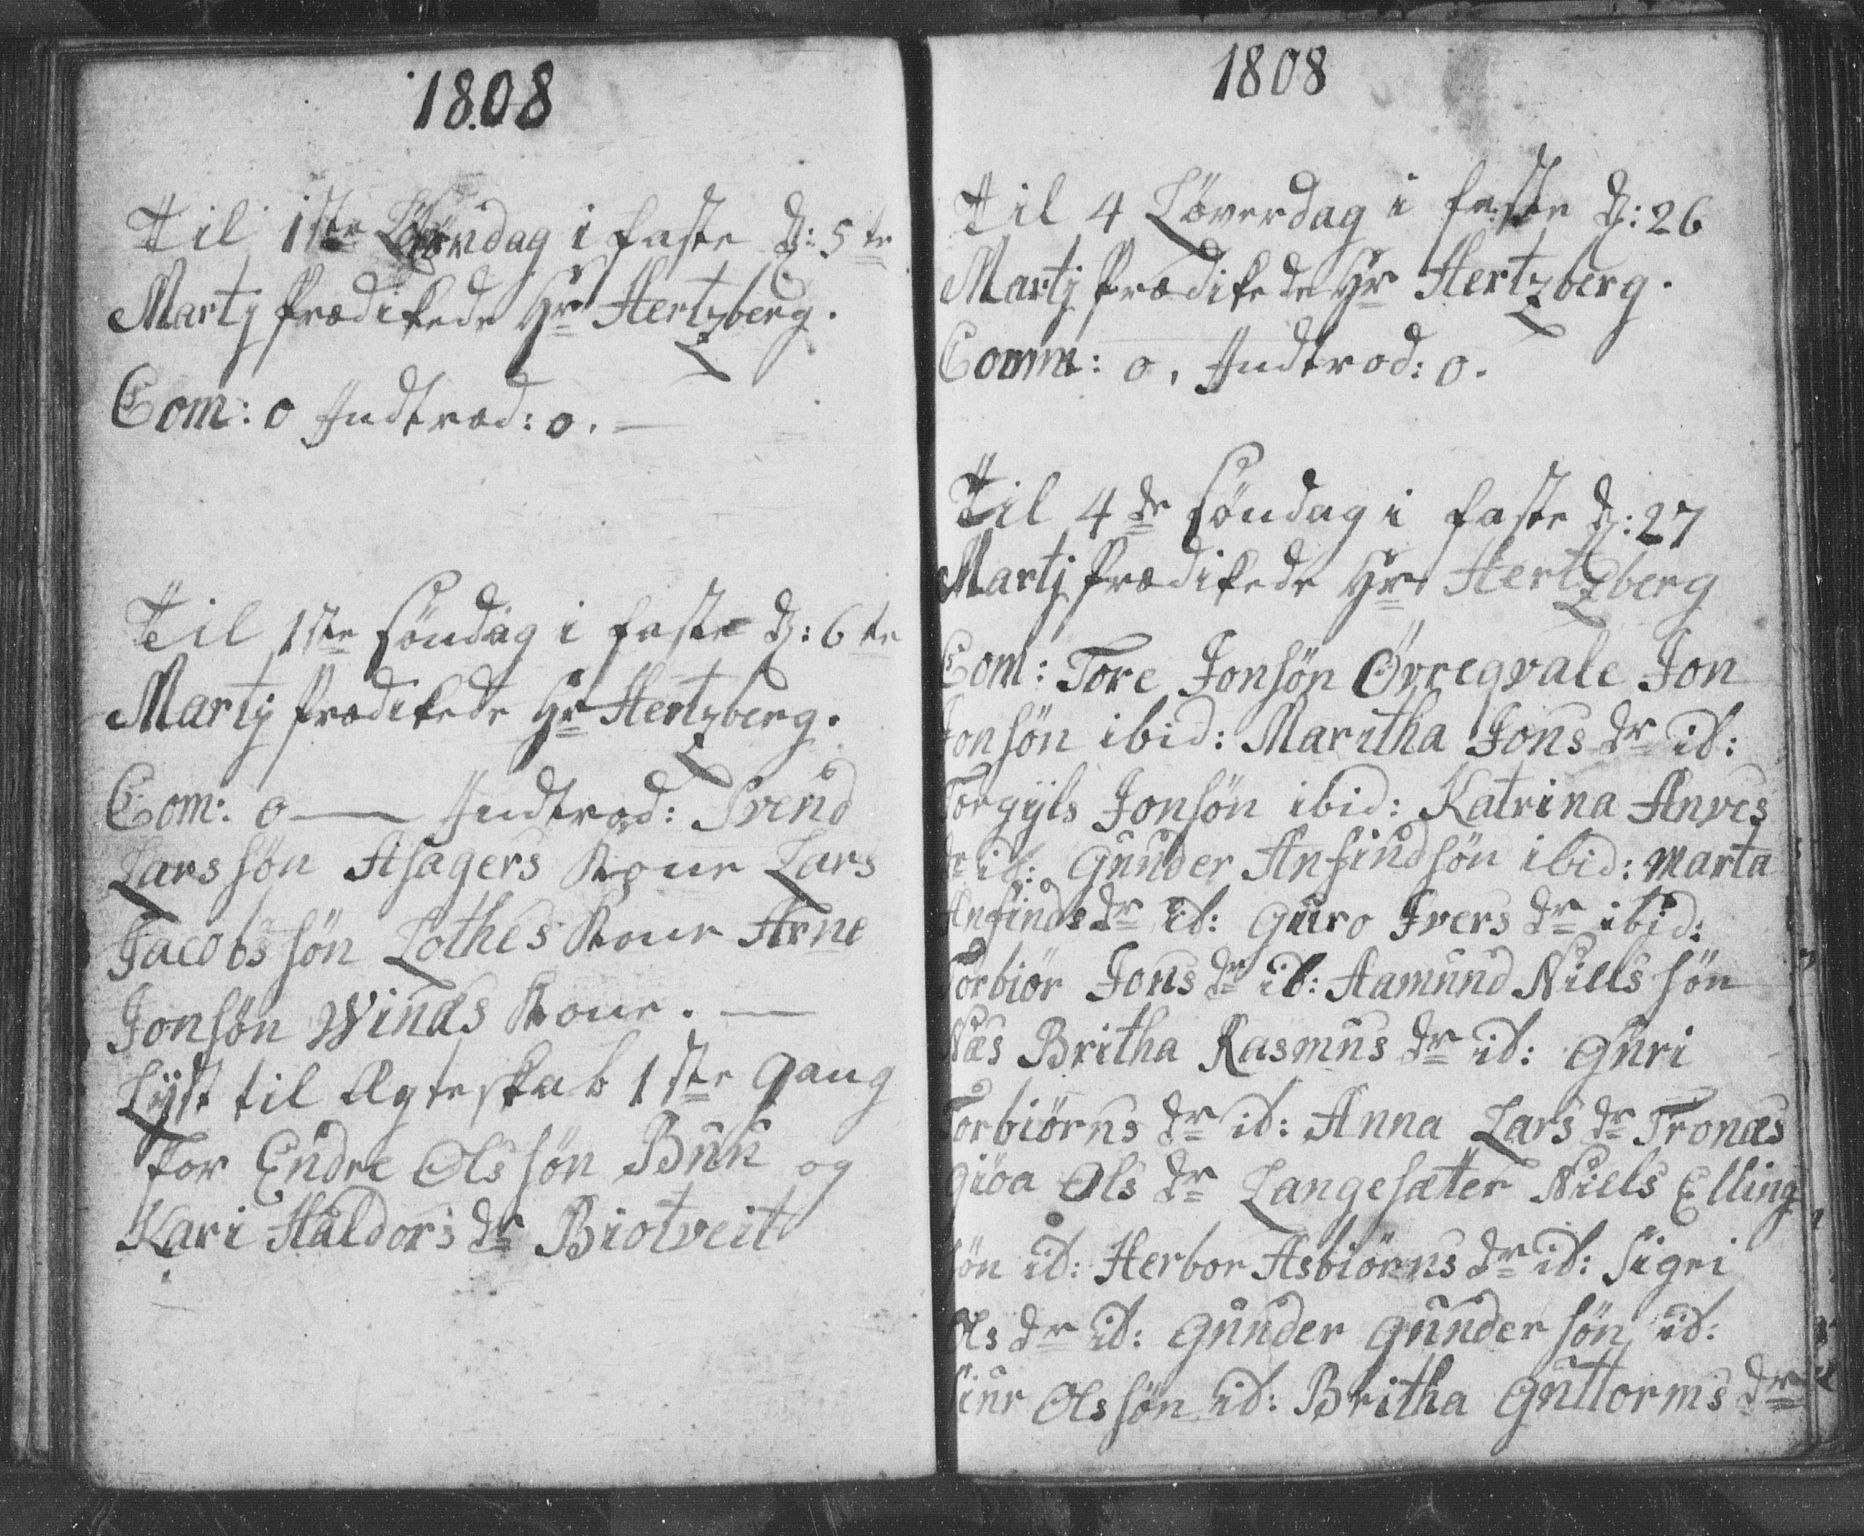 1808
Til 1ste Löverdag i faste D: 5te
Martj Prædikede Hr Hertzberg.
Com: 0 Indtræd: 0. —
Til 1ste Söndag i faste D: 6te
Martj Prædikede Hr Hertzberg.
Com: 0 — Indtræd: Svend
Lars søn Asagers Kone Lars
Jacobs søn Lothes Kone Arne
Jonsøn Winæs Kone. —
Lyst til Ægteskab 1ste Gang
for Endre Ols søn Buu og
Kari Haldors dr Biotveit
1808
Til 4 Löverdag i faste D: 26
Martj Prædikede Hr Hertzberg.
Comm: 0, Indtræd: 0.
Til 4de Söndag i faste D: 27
Martj Prædikede Hr Hertzberg
Com: Tore Jonsøn Øvreqvale Jon
Jonsøn ibid: Maritha Jons dr id:
Torgyls Jonsøn ibid: Katrina Anves
dr id: Gunder Anfindsøn ibid: Marta
Anfinds dr id: Guro Ivers dr ibid:
Torbiør Jons dr id: Aamund Nills søn
Næs Britha Rasmus dr id: Guri
Torbiørns dr id: Anna Lars dr Tronæs
Giöa Ols dr Langesæter Niels Elling
søn id: Herbor Asbiörns dr id: Sigri
Ols dr id: Gunder Gunder søn id:
Siur Ols søn id: Britha Guttorms dr